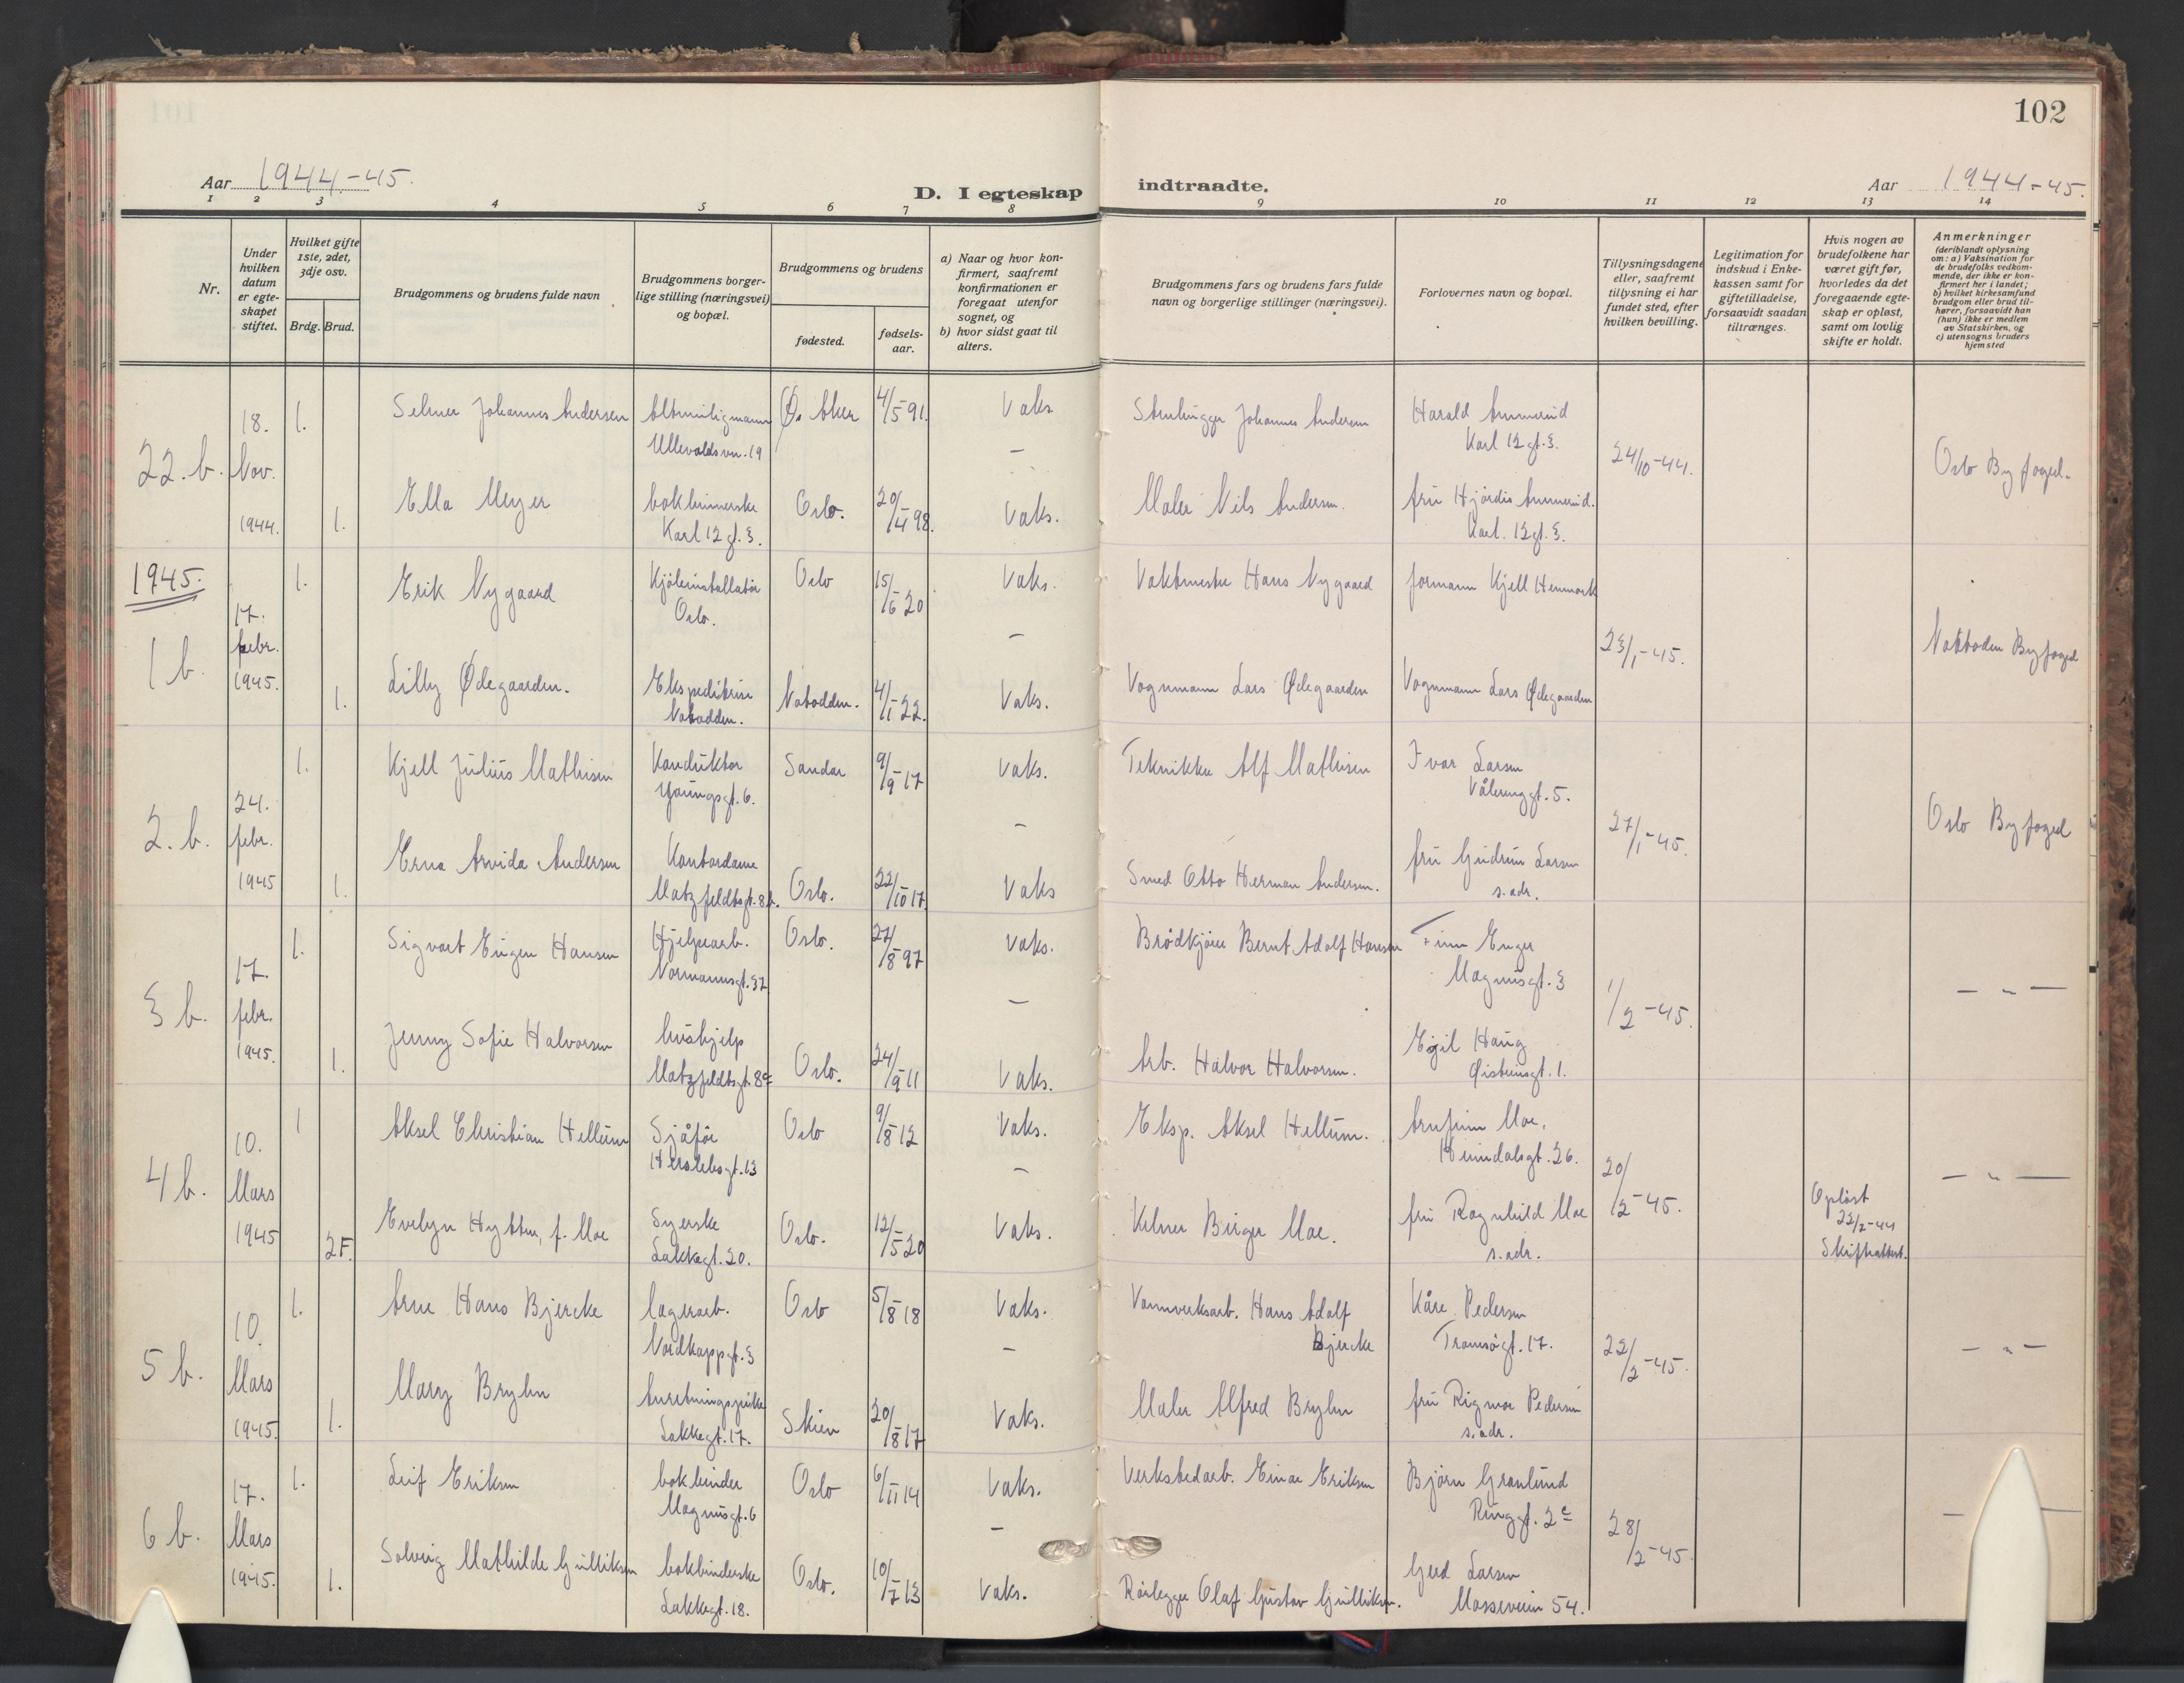 102
Aar 1944-45.
D. I egteskap indtraadte.
Aar 1944-45.
1 2 3 4 5 6 7 8 9 10 11 12 13 14
Nr.
Under hvilken datum er egteskapet stiftet.
Hvilket gifte 1ste, 2det, 3dje osv.
Brdg. Brud.
Brudgommens og brudens fulde navn
Brudgommens borgerlige stilling (næringsvei) og bopæl.
Brudgommens og brudens
fødested.
fødselsaar.
a) Naar og hvor konfirmert, saafremt konfirmationen er foregaat utenfor sognet, og
b) hvor sidst gaat til alters.
Brudgommens fars og brudens fars fulde navn og borgerlige stillinger (næringsvei).
Forlovernes navn og bopæl.
Tillysningsdagene eller, saafremt tillysning ei har fundet sted, efter hvilken bevilling.
Legitimation for indskud i Enkekassen samt for giftetilladelse, forsaavidt saadan tiltrænges.
Hvis nogen av brudefolkene har været gift før, hvorledes da det foregaaende egteskap er opløst, samt om lovlig skifte er holdt.
Anmerkninger
(deriblandt oplysning om: a) Vaksination for de brudefolks vedkommende, der ikke er konfirmert her i landet;
b) hvilket kirkesamfund brudgom eller brud tilhører, forsaavidt han (hun) ikke er medlem av Statskirken, og
c) utensogns bruders hjemsted
22.b. 18. Nov. 1944.
1. Selmer Johannes Andersen
Ullevaldsvn. 19
Ø. Aker 4/5-91. Vaks.
Johannes Andersen
Harald Ammerud
Karl 12 gt. 3.
24/10-44.
Oslo Byfoged.
1. Ella Meyer
bokbinnerske
Karl 12 gt. 3.
Oslo. 20/4-98. Vaks.
Maler Nils Andersen.
fru Hjördis Ammerud.
Karl. 12 gt. 3.
1945.
1 b. 17. febr. 1945.
1. Erik Nygaard
Kjöleinstallatör
Oslo.
Oslo 15/6-20 Vaks.
Vaktmester Hans Nygaard
formann Kjell Henmark
23/1-45.
Notodden Byfoged
1. Lilly Ødegaarden.
Ekspeditrise
Notodden.
Notodden. 4/1-22. Vaks.
Vognmann Lars Ødegaarden
Vognmann Lars Ødegaarden
2. b. 24. febr. 1945
1. Kjell Julius Mathisen
Konduktör
Youngsgt. 6.
Sandar 9/9-17 Vaks.
Tekniker Alf Mathisen
Ivar Larsen
Vålerenggt. 5.
27/1-45.
Oslo Byfoged
1. Erna Arvida Andersen
Kontordame
Motzfeldtsgt. 8b.
Oslo. 22/10-17. Vaks
Smed Otto Herman Andersen.
fru Gudrun Larsen
s. adr.
3 b. 17. febr. 1945.
1. Sigvart Eugen Hansen
Hjelpearb.
Normannsgt. 37
Oslo. 27/8-97 Vaks.
Brödkjörer Bernt Adolf Hansen
Finn Enger
Magnusgt. 3
1/2-45.
— " —
1. Jenny Sofie Halvorsen
hushjelp
Motzfeldtsgt. 8c
Oslo. 24/9-11 Vaks.
Arb. Halvor Halvorsen.
Egil Haug
Øisteinsgt. 1.
4 b. 10. Mars 1945
1 Aksel Christian Hellum
Sjåför
Herslebsgt. 13
Oslo 9/8-12 Vaks.
Eksp. Aksel Hellum.
Arnfinn Moe.
Heimdalsgt. 26.
20/2-45.
— " —
2F. Evelyn Hytten, f. Moe
Syerske
Lakkegt. 20.
Oslo. 12/5-20 Vaks.
Kelner Birger Moe.
fru Ragnhild Moe
s. adr.
Oplöst
22/2-44
Skifteattest.
5 b. 10. Mars 1945.
1. Arne Hans Bjercke
lagerarb.
Nordkappgt. 3
Oslo 5/8-18 Vaks.
Vannverksarb. Hans Adolf
Bjercke
Kåre Pedersen
Tromsögt. 17.
22/2-45.
— " —
1. Mary Bryhn
Anretningspike
Lakkegt. 17.
Skien 20/8-17 Vaks.
Maler Alfred Bryhn
fru Rigmor Pedersen
s. adr.
6 b. 17. Mars 1945.
1. Leif Eriksen
bokbinder
Magnusgt. 6
Oslo 6/11-14 Vaks.
Verkstedarb. Einar Eriksen
Björn Granlund
Ringgt. 2c
28/2-45.
1. Solveig Mathilde Gulliksen
bokbinderske
Lakkegt. 18.
Oslo. 10/7-13 Vaks.
Rörlegger Olaf Gustav Gulliksen.
Gerd Larsen
Mosseveien 54.